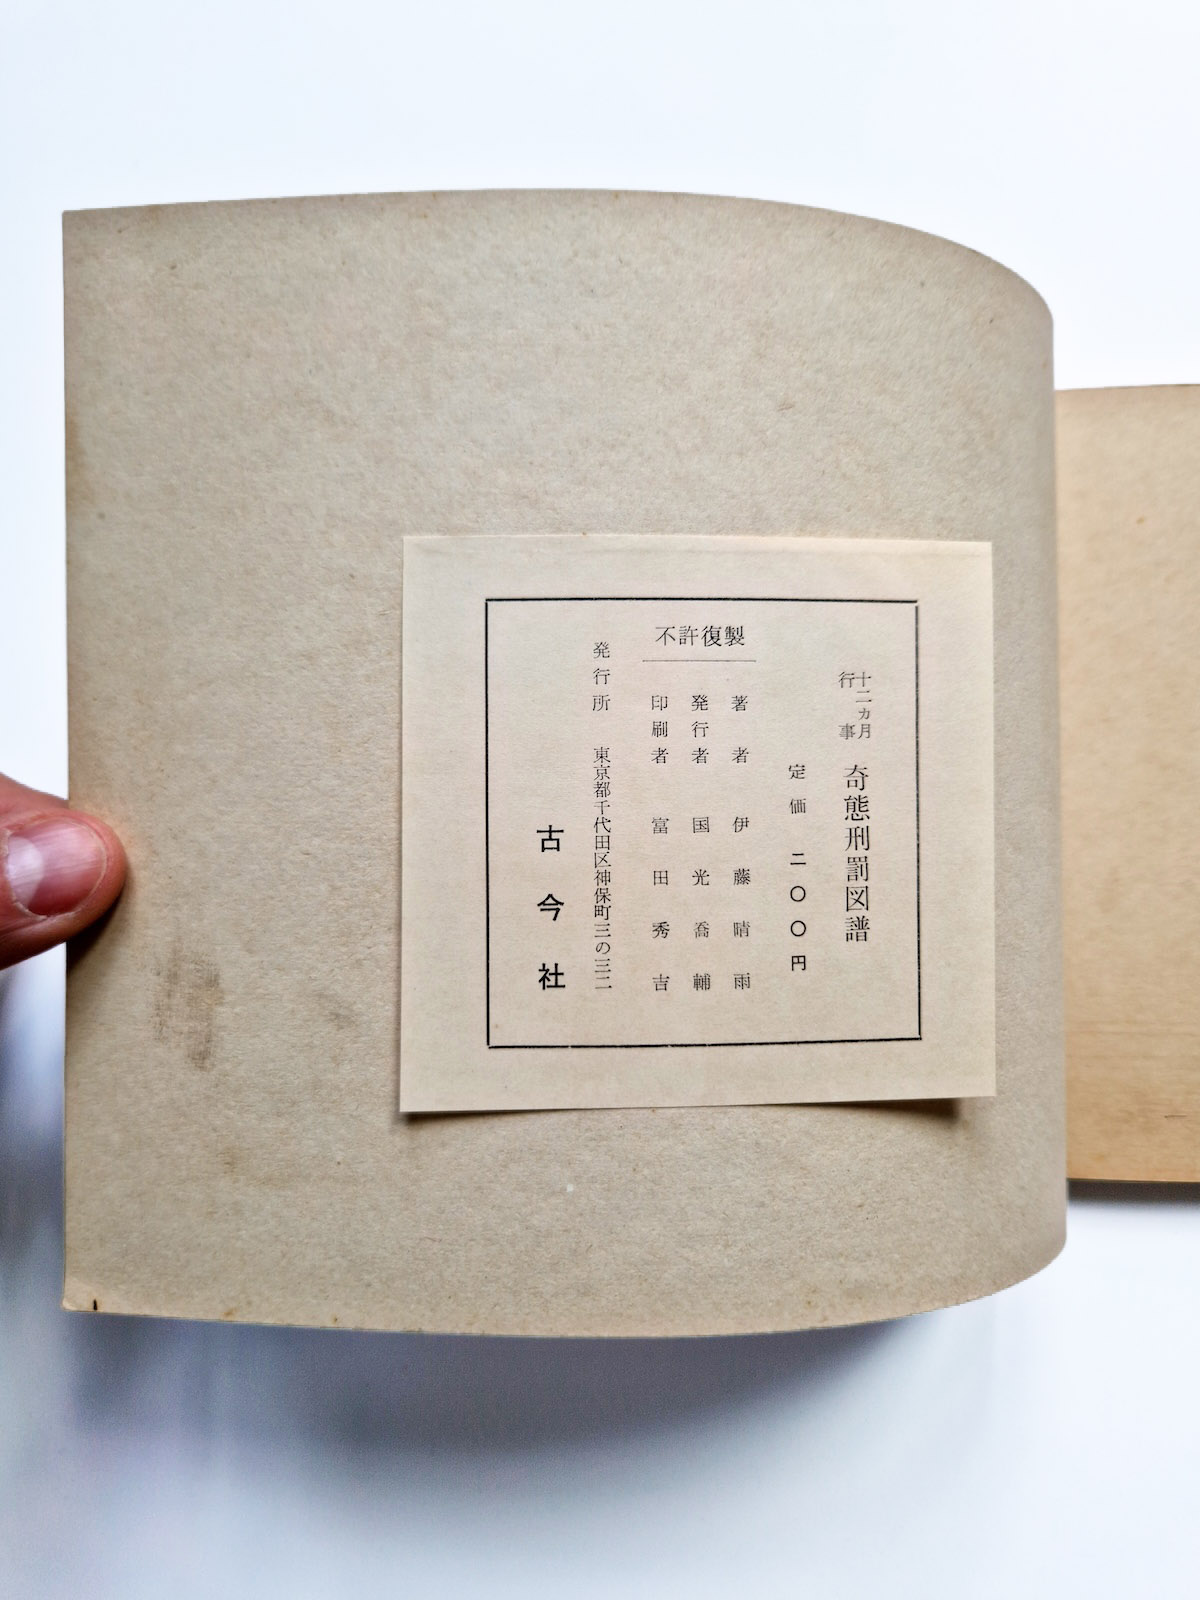 十二ヵ月
行事
奇態刑罰図譜
定価 二〇〇円
不許復製
著者 伊藤晴雨
発行者 国光喬輔
印刷者 富田秀吉
発行所 東京都千代田区神保町三の三二
古今社